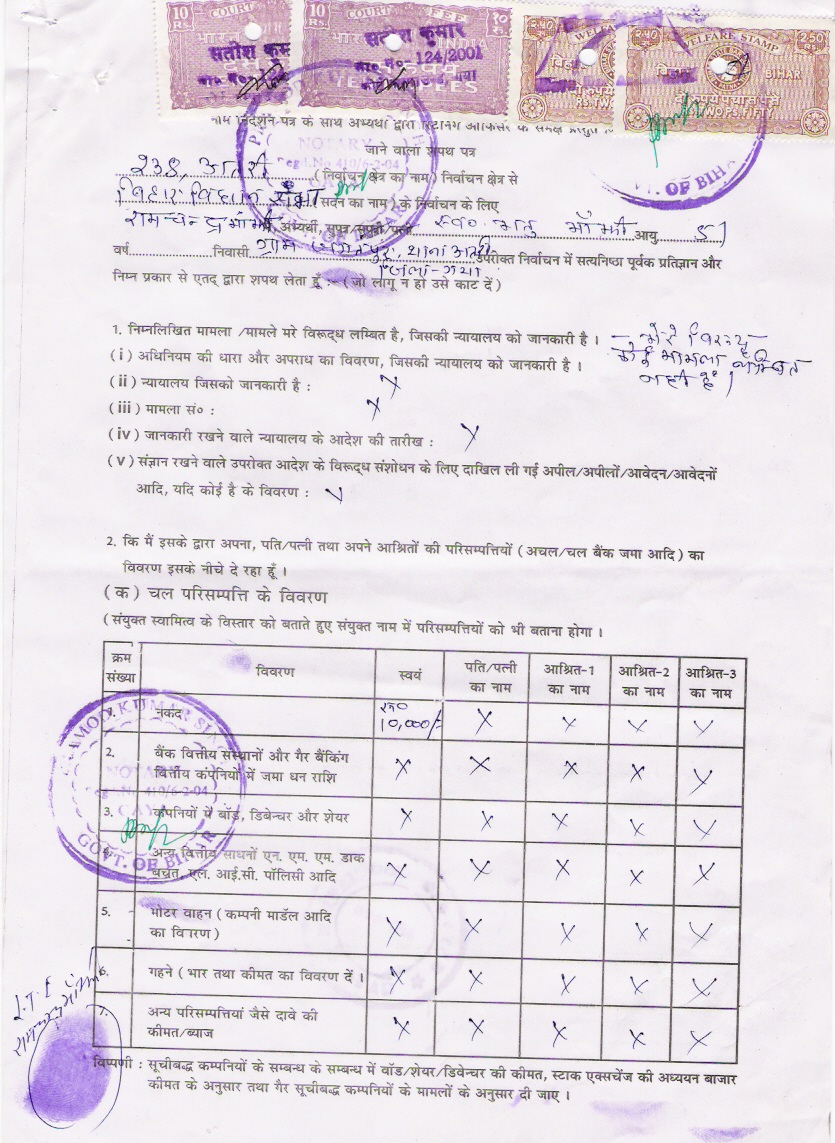 10 COURT FEE १०
Rs. रु.
सतीश कुमार
124/2001
२.५० WELFARE STAMP 2.50
बिहार BIHAR
नाम निर्देशन-पत्र के साथ अभ्यर्थी द्वारा रिटर्निंग ऑफिसर के समक्ष प्रस्तुत
जाने वाला शपथ पत्र
238, अतरी (निर्वाचन क्षेत्र का नाम) निर्वाचन क्षेत्र से
बिहार विधान सभा सदन का नाम) के निर्वाचन के लिए
रामचन्द्र मांझी अभ्यर्थी, सुपुत्र/सुपुत्री/पत्नी स्व० भातु माँझी आयु 51
वर्ष निवासी ग्राम थाना अतरी, उपरोक्त निर्वाचन में सत्यनिष्ठा पूर्वक प्रतिज्ञान और
जिला-गया
निम्न प्रकार से एतद् द्वारा शपथ लेता हूँ :- (जो लागू न हो उसे काट दें)
1. निम्नलिखित मामला /मामले मरे विरूद्ध लम्बित है, जिसकी न्यायालय को जानकारी है । - मेरे विरुद्ध
कोई मामला लम्बित
नहीं है।
(i) अधिनियम की धारा और अपराध का विवरण, जिसकी न्यायालय को जानकारी है ।
(ii) न्यायालय जिसको जानकारी है : X
(iii) मामला सं० : X
(iv) जानकारी रखने वाले न्यायालय के आदेश की तारीख : X
(v) संज्ञान रखने वाले उपरोक्त आदेश के विरूद्ध संशोधन के लिए दाखिल ली गई अपील/अपीलों/आवेदन/आवेदनों
आदि, यदि कोई है के विवरण : X
2. कि मैं इसके द्वारा अपना, पति/पत्नी तथा अपने आश्रितों की परिसम्पत्तियों (अचल/चल बैंक जमा आदि) का
विवरण इसके नीचे दे रहा हूँ ।
(क) चल परिसम्पत्ति के विवरण
(संयुक्त स्वामित्व के विस्तार को बताते हुए संयुक्त नाम में परिसम्पत्तियों को भी बताना होगा ।
क्रम संख्या विवरण स्वयं पति/पत्नी का नाम आश्रित-1 का नाम आश्रित-2 का नाम आश्रित-3 का नाम
नकद रु० 10,000/- X X X X
2. बैंक वित्तीय संस्थानों और गैर बैंकिंग
वित्तीय कंपनियों में जमा धन राशि X X X X X
3. कंपनियों में बॉड, डिबेन्चर और शेयर X X X X X
अन्य वित्तीय साधनों एन. एम. एम. डाक
बचत, एल. आई.सी. पॉलिसी आदि X X X X X
5. मोटर वाहन (कम्पनी मार्डल आदि
का विवरण) X X X X X
6. गहने (भार तथा कीमत का विवरण दें । X X X X X
7. अन्य परिसम्पत्तियां जैसे दावे की
कीमत/ब्याज X X X X X
L.T.I
रामचन्द्र मांझी
टिप्पणी : सूचीबद्ध कम्पनियों के सम्बन्ध के सम्बन्ध में वॉड/शेयर/डिवेन्चर की कीमत, स्टाक एक्सचेंज की अध्ययन बाजार
कीमत के अनुसार तथा गैर सूचीबद्ध कम्पनियों के मामलों के अनुसार दी जाए ।
NOTARY
Regd.No 410/6-2-04
GOVT. OF BIHAR